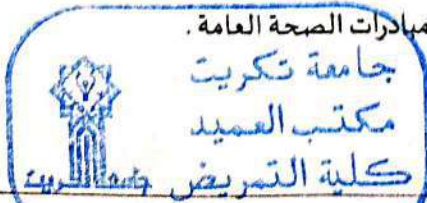 مبادرات الصحة العامة .
جامعة تكريت
مكتب العميد
كلية التمريض
جامعة تكريت